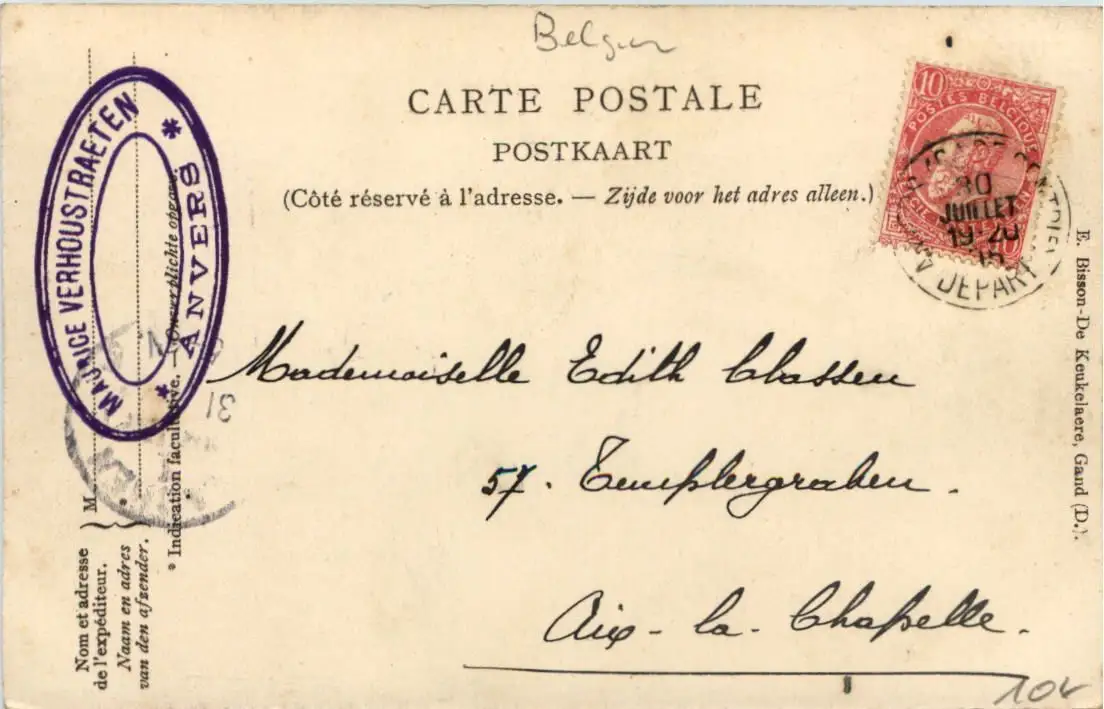 Belgien
CARTE POSTALE
POSTKAART
(Côté réservé à l'adresse. — Zijde voor het adres alleen.)
10
POSTES BELGIQUE
10
30
JUILLET
19-20
DEPART
MAURICE VERHOUSTRAETEN
* ANVERS *
Mademoiselle Edith Classen
57. Templergraben.
Aix-la-Chapelle.
M
Nom et adresse
de l'expéditeur.
Naam en adres
van den afzender.
* Indication facultative. — Onverplichte opgave.
31
E. Bisson-De Keukelaere, Gand (D.).
104